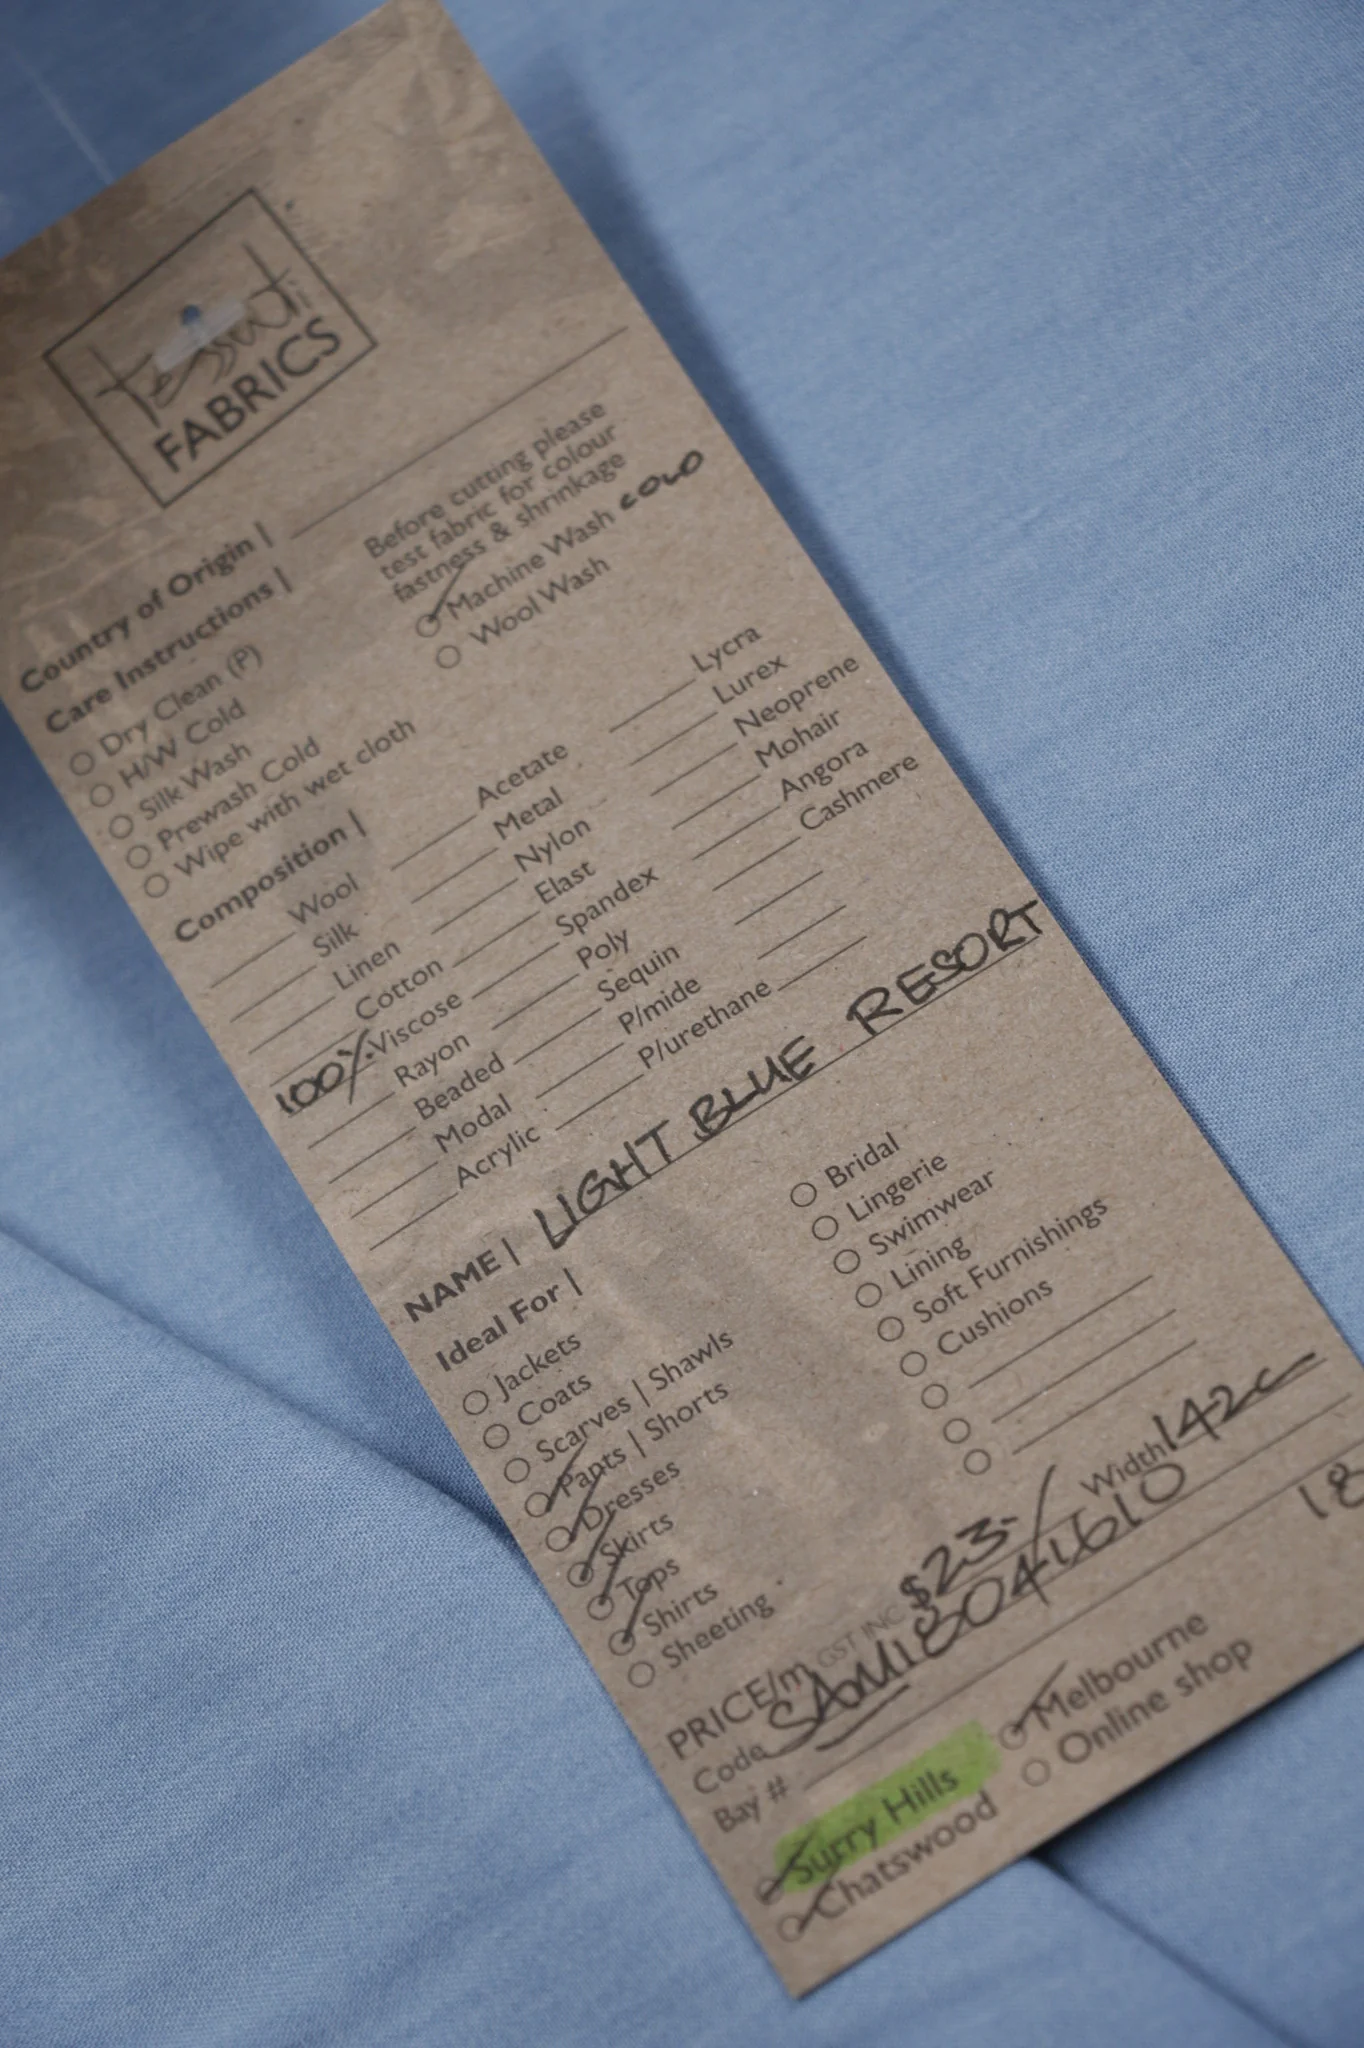 tessuti
FABRICS
Country of Origin |
Care Instructions |
Before cutting please
test fabric for colour
fastness & shrinkage
Dry Clean (P)
H/W Cold
Silk Wash
Prewash Cold
Wipe with wet cloth
Machine Wash COLD
Wool Wash
Composition |
Wool
Silk
Linen
Cotton
100% Viscose
Rayon
Beaded
Modal
Acrylic
Acetate
Metal
Nylon
Elast
Spandex
Poly
Sequin
P/mide
P/urethane
Lycra
Lurex
Neoprene
Mohair
Angora
Cashmere
NAME | LIGHT BLUE RESORT
Ideal For |
Jackets
Coats
Scarves | Shawls
Pants | Shorts
Dresses
Skirts
Tops
Shirts
Sheeting
Bridal
Lingerie
Swimwear
Lining
Soft Furnishings
Cushions
PRICE/m GST INC $23.- Width 142c
Code SAMI8041610
Bay #
18
Surry Hills
Chatswood
Melbourne
Online shop